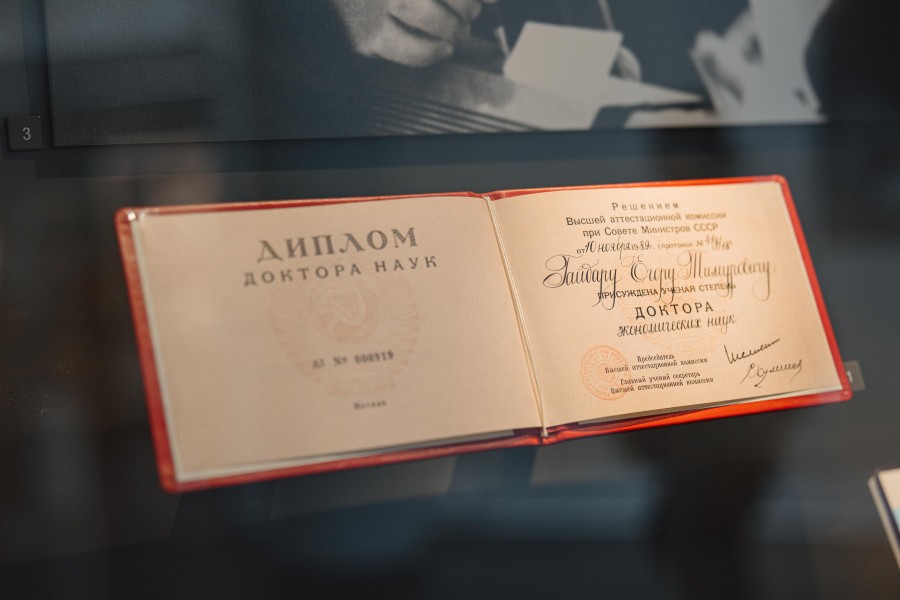 3
ДИПЛОМ
ДОКТОРА НАУК
ДТ № 000919
Москва
Решением
Высшей аттестационной комиссии
при Совете Министров СССР
от 10 ноября 1989 г. (протокол №
Гайдару Егору Тимуровичу
ПРИСУЖДЕНА УЧЕНАЯ СТЕПЕНЬ
ДОКТОРА
экономических наук
Председатель
Высшей аттестационной комиссии
Главный ученый секретарь
Высшей аттестационной комиссии